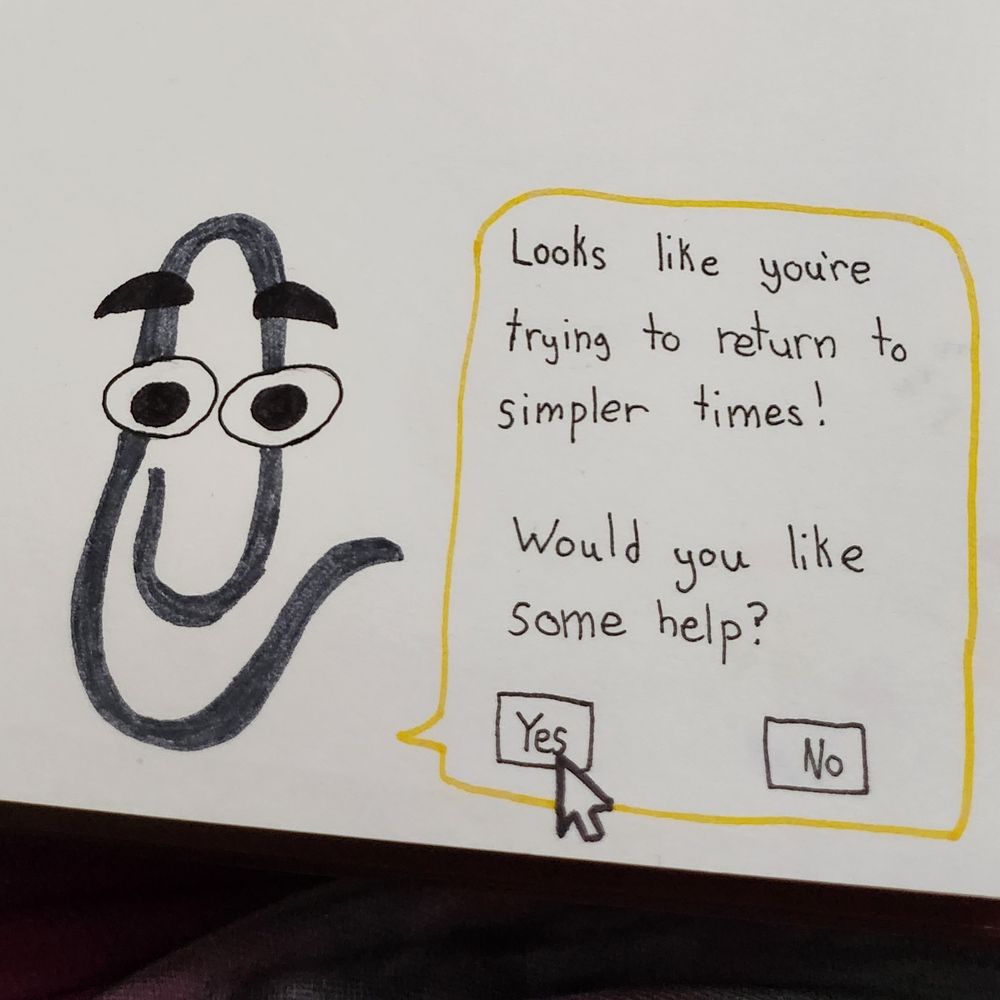 Looks like you're
trying to return to
simpler times!
Would you like
some help?
Yes
No